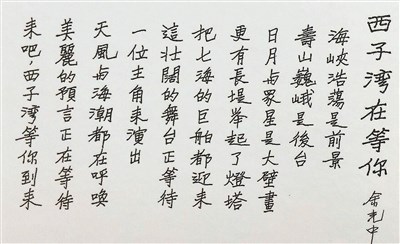 西子灣在等你
余光中
海峽浩蕩是前景
壽山巍峨是後台
日月與眾星是大壁畫
更有長堤舉起了燈塔
把七海的巨舶都迎來
這壯闊的舞台正等待
一位主角來演出
天風與海潮都在呼喚
美麗的預言正在等待
來吧，西子灣等你到來